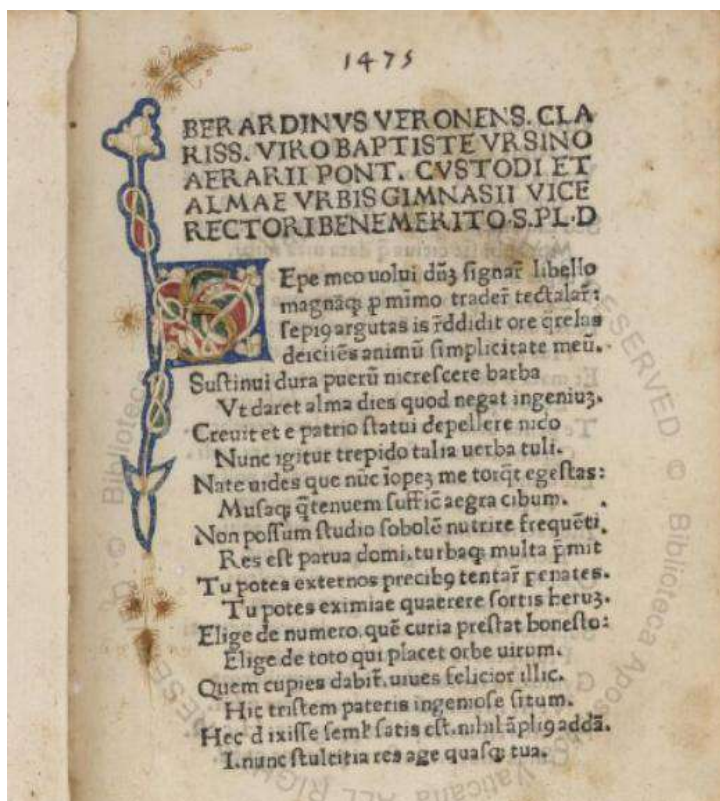 1475
BERARDINVS VERONENS. CLA
RISS. VIRO BAPTISTE VRSINO
AERARII PONT. CVSTODI ET
ALMAE VRBIS GIMNASII VICE
RECTORI BENEMERITO.S.PL.D
SEpe meo uolui dn̄ꝫ signar̄ libello
magnāqꝫ p mīmo trader̄ tectalar̄:
sepiꝯ argutas is r̄ddidit ore q̄relas
deiciēs animū simplicitate meū.
Sustinui dura puerū nicrescere barba
Vt daret alma dies quod negat ingeniuꝫ.
Creuit et e patrio statui depellere nido
Nunc igitur trepido talia uerba tuli.
Nate uides que nūc īopeꝫ me torq̄t egestas:
Musaqꝫ q̄tenuem suffic̄ aegra cibum.
Non possum studio sobolē nutrire frequēti.
Res est parua domi.turbaqꝫ multa p̄mit
Tu potes externos precibꝯ tentar̄ penates.
Tu potes eximiae quaerere sortis heruꝫ.
Elige de numero.quē curia prestat honesto:
Elige de toto qui placet orbe uirum.
Quem cupies dabit̄.uiues felicior illic.
Hic tristem pateris ingeniose situm.
Hec dixisse semł satis est.nihil āpliꝯ addā.
I.nunc stultitia res age quasqꝫ tua.